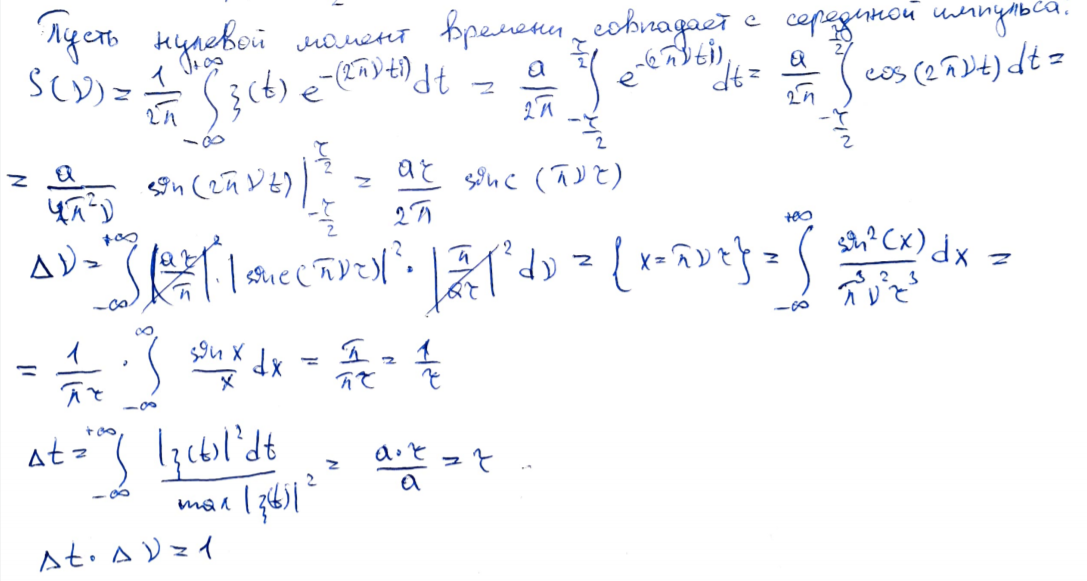 Пусть нулевой момент времени совпадает с серединой импульса.
S(ν) = 1/2π ∫_{-∞}^{+∞} ξ(t) e^{-(2πνti)} dt = a/2π ∫_{-τ/2}^{τ/2} e^{-(2πνti)} dt = a/2π ∫_{-τ/2}^{τ/2} cos(2πνt) dt =
= a/4π²ν sin(2πνt) |_{-τ/2}^{τ/2} = aτ/2π sinc(πντ)
Δν = ∫_{-∞}^{+∞} |aτ/π|² · |sinc(πντ)|² · |π/aτ|² dν = { x = πντ } = ∫_{-∞}^{+∞} sin²(x)/π³ν²τ³ dx =
= 1/πτ · ∫_{-∞}^{∞} sin x/x dx = π/πτ = 1/τ
Δt = ∫_{-∞}^{+∞} |ξ(t)|² dt / max |ξ(t)|² = a·τ/a = τ ..
Δt · Δν = 1